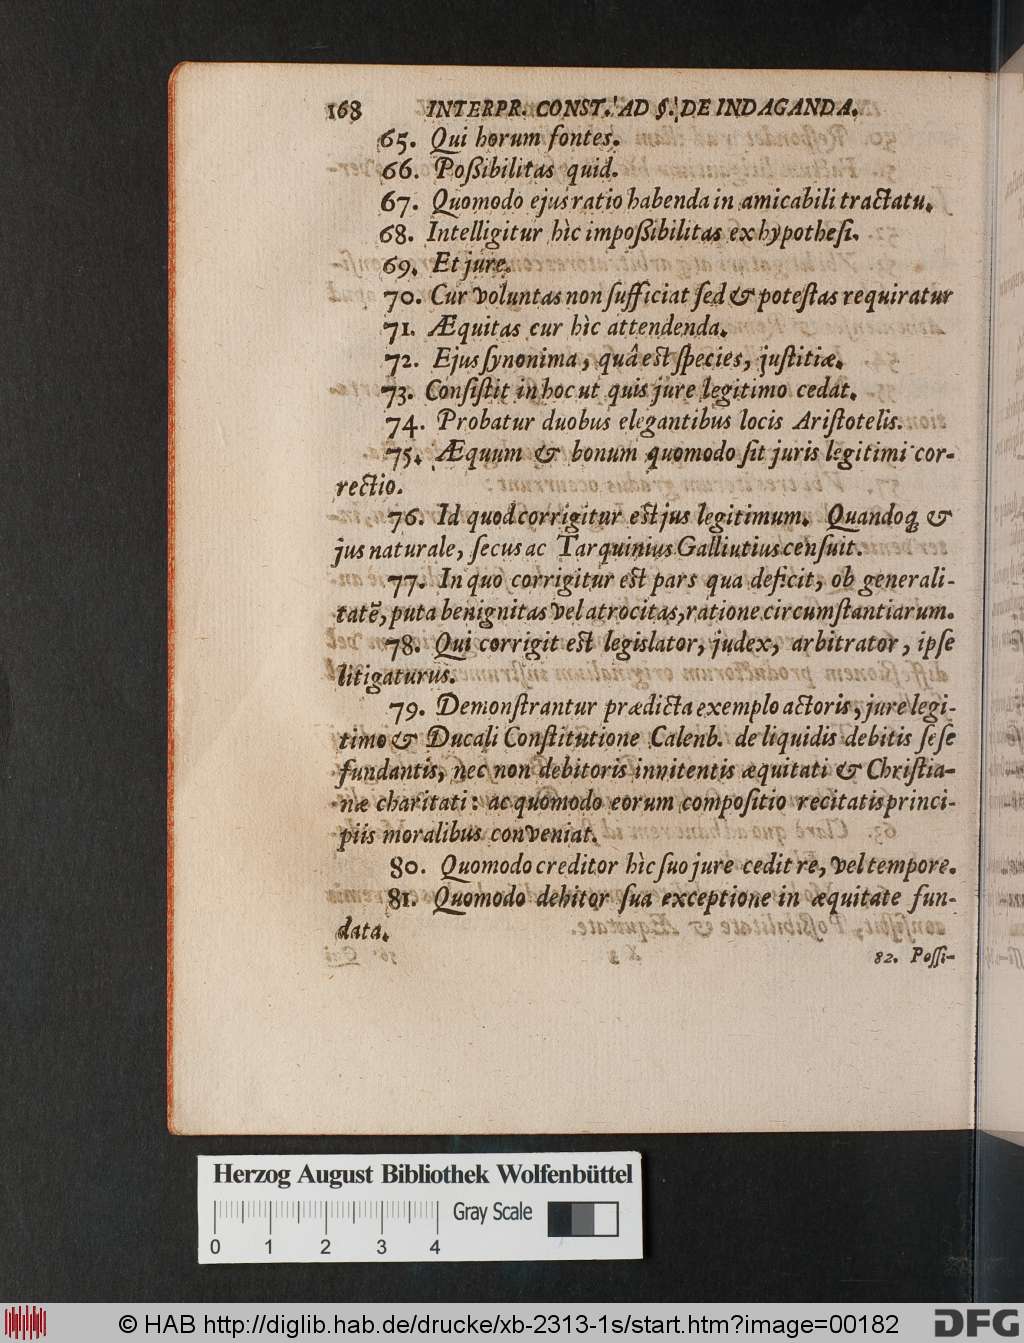 168 INTERPR. CONST. AD §. DE INDAGANDA.
65. Qui horum fontes.
66. Poßibilitas quid.
67. Quomodo ejus ratio habenda in amicabili tractatu.
68. Intelligitur hìc impoßibilitas ex hypotheſi.
69. Et jure.
70. Cur voluntas non ſufficiat ſed & poteſtas requiratur
71. Æquitas cur hìc attendenda.
72. Ejus ſynonima, quâ est ſpecies, juſtitiæ.
73. Conſiſtit in hoc ut quis jure legitimo cedat.
74. Probatur duobus elegantibus locis Ariſtotelis.
75. Æquum & bonum quomodo ſit juris legitimi cor-
rectio.
76. Id quod corrigitur est jus legitimum. Quandoq; &
jus naturale, ſecus ac Tarquinius Galliutius cenſuit.
77. In quo corrigitur est pars qua deficit, ob generali-
tatẽ, puta benignitas vel atrocitas, ratione circumſtantiarum.
78. Qui corrigit est legislator, judex, arbitrator, ipſe
litigaturus.
79. Demonſtrantur prædicta exemplo actoris, jure legi-
timo & Ducali Conſtitutione Calenb. de liquidis debitis ſeſe
fundantis, nec non debitoris innitentis æquitati & Chriſtia-
næ charitati: ac quomodo eorum compoſitio recitatis princi-
piis moralibus conveniat.
80. Quomodo creditor hìc ſuo jure cedit re, vel tempore.
81. Quomodo debitor ſua exceptione in æquitate fun-
data.
82. Poſſi-
Herzog August Bibliothek Wolfenbüttel
Gray Scale
0 1 2 3 4
© HAB http://diglib.hab.de/drucke/xb-2313-1s/start.htm?image=00182
DFG